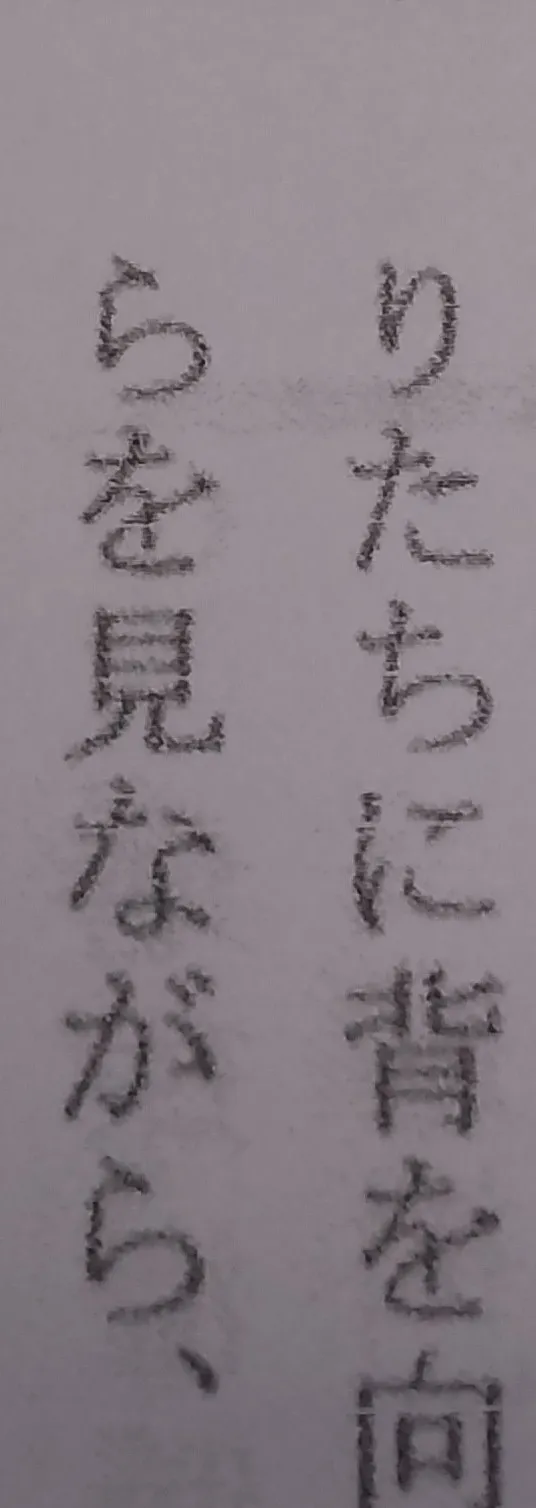 りたちに背を向
らを見ながら、